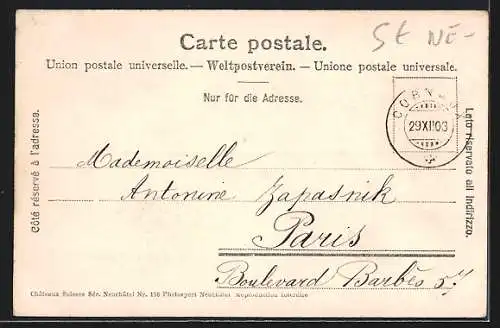 Carte postale.
St NE-
Union postale universelle. — Weltpostverein. — Unione postale universale.
Nur für die Adresse.
CORNAUX
29XII03
Côté réservé à l'adresse.
Lato riservato all indirizzo.
Mademoiselle
Antonine Zapasnik
Paris
Boulevard Barbès 57
Châteaux Suisses Sér. Neuchâtel Nr. 156 Photosport Neuchâtel Reproduction interdite